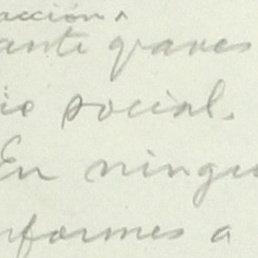 acción
ante graves
io social.
En ningu
nformes a